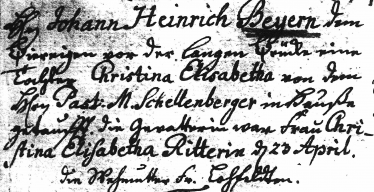 H. Johann Heinrich Beyern dem
vor der langen Brücke eine
Tochter Christina Elisabetha von dem
H. Past. M. Schellenberger in Hauße
getaufft, die Gevatterin war Frau Chri-
stina Elisabetha Ritterin d. 23 April.
die Wehmutter Fr.